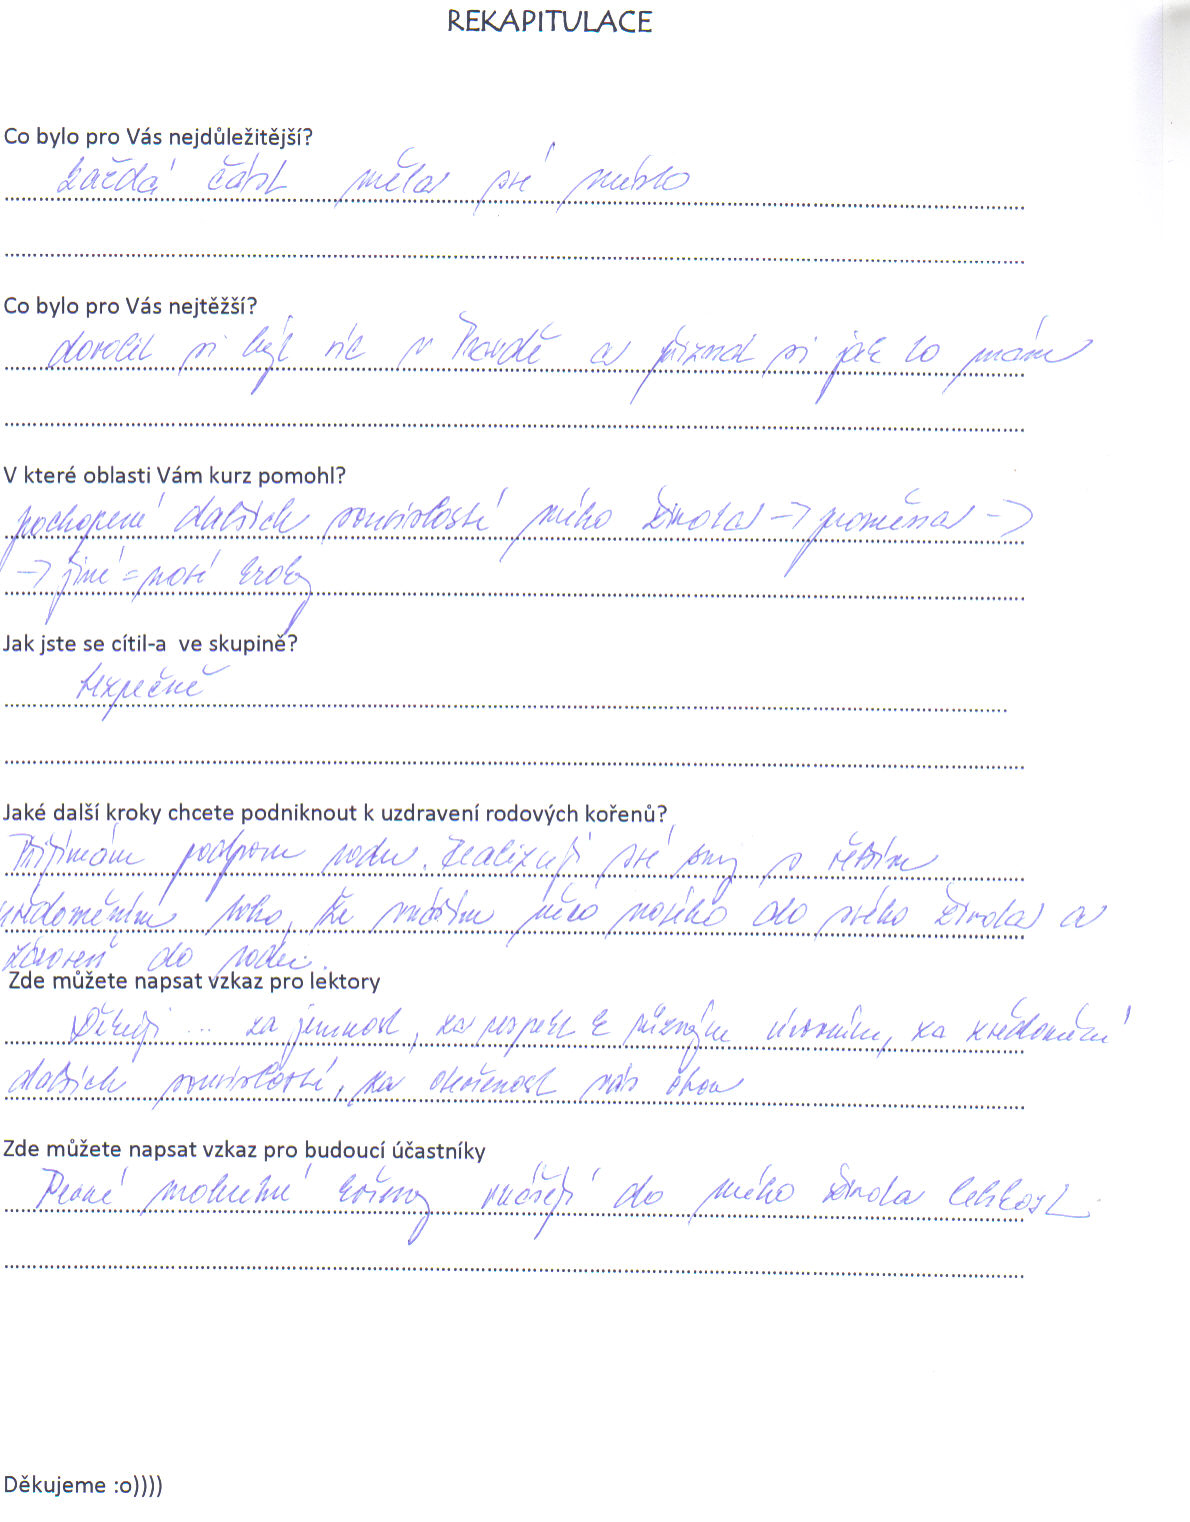 REKAPITULACE
Co bylo pro Vás nejdůležitější?
každá část měla své místo
Co bylo pro Vás nejtěžší?
dovolit si být víc v Pravdě a přiznat si jak to mám
V které oblasti Vám kurz pomohl?
pochopení dalších souvislostí mého života → proměna →
→ jiné = nové kroky
Jak jste se cítil-a ve skupině?
bezpečně
Jaké další kroky chcete podniknout k uzdravení rodových kořenů?
Přijímám podporu rodu. Realizuji své sny s větším
uvědoměním toho, že vnáším něco nového do svého života a
zároveň do rodu.
Zde můžete napsat vzkaz pro lektory
Děkuji ... za jemnost, za respekt k různým úrovním, za zvědomění
dalších souvislostí, za otevřenost vás obou
Zde můžete napsat vzkaz pro budoucí účastníky
Pevné mohutné kořeny vnášejí do mého života lehkost.
Děkujeme :o))))